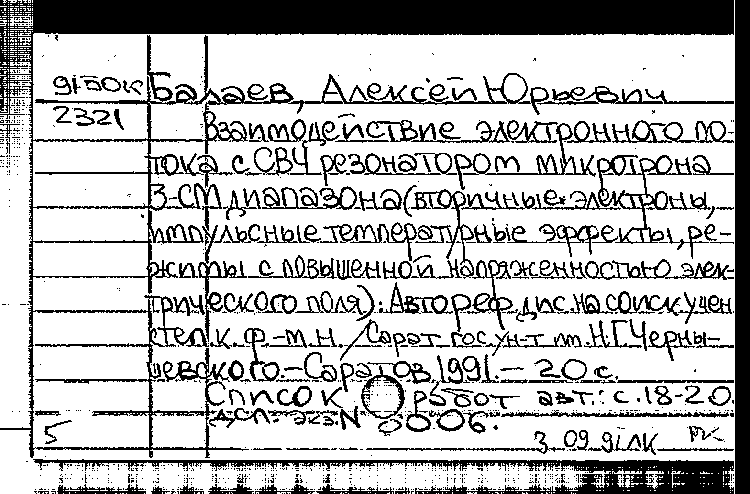 91БОК Балаев, Алексей Юрьевич
2321 Взаимодействие электронного по-
тока с СВЧ резонатором микротрона
3-СМ диапазона (вторичные электроны,
импульсные температурные эффекты, ре-
жимы с повышенной напряженностью элек-
трического поля): Автореф. дис. на соиск. учен.
степ. к. ф.-м. н. / Сарат. гос. ун-т им. Н.Г. Черны-
шевского.-Саратов, 1991.- 20 с.
Список работ авт.: с. 18-20.
ДСП. экз. N 0006.
5 3.09.91